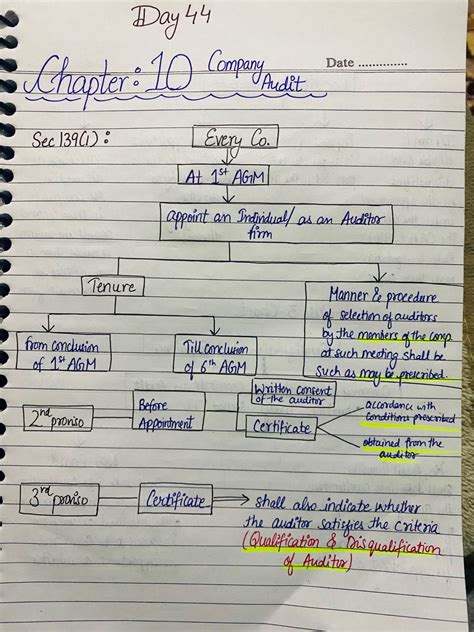 Day 44
Date ..............
Chapter: 10 Company Audit
Sec 139(1) :
Every Co.
At 1st AGM
appoint an Individual/ as an Auditor
firm
Tenure
Manner & procedure
of selection of auditors
by the members of the comp.
at such meeting shall be
such as may be prescribed.
from conclusion
of 1st AGM
Till conclusion
of 6th AGM
2nd proviso
Before
Appointment
Written consent
of the auditor
Certificate
accordance with
conditions prescribed
obtained from the
auditor
3rd proviso
Certificate
shall also indicate whether
the auditor satisfies the Criteria
(Qualification & Disqualification
of Auditor)